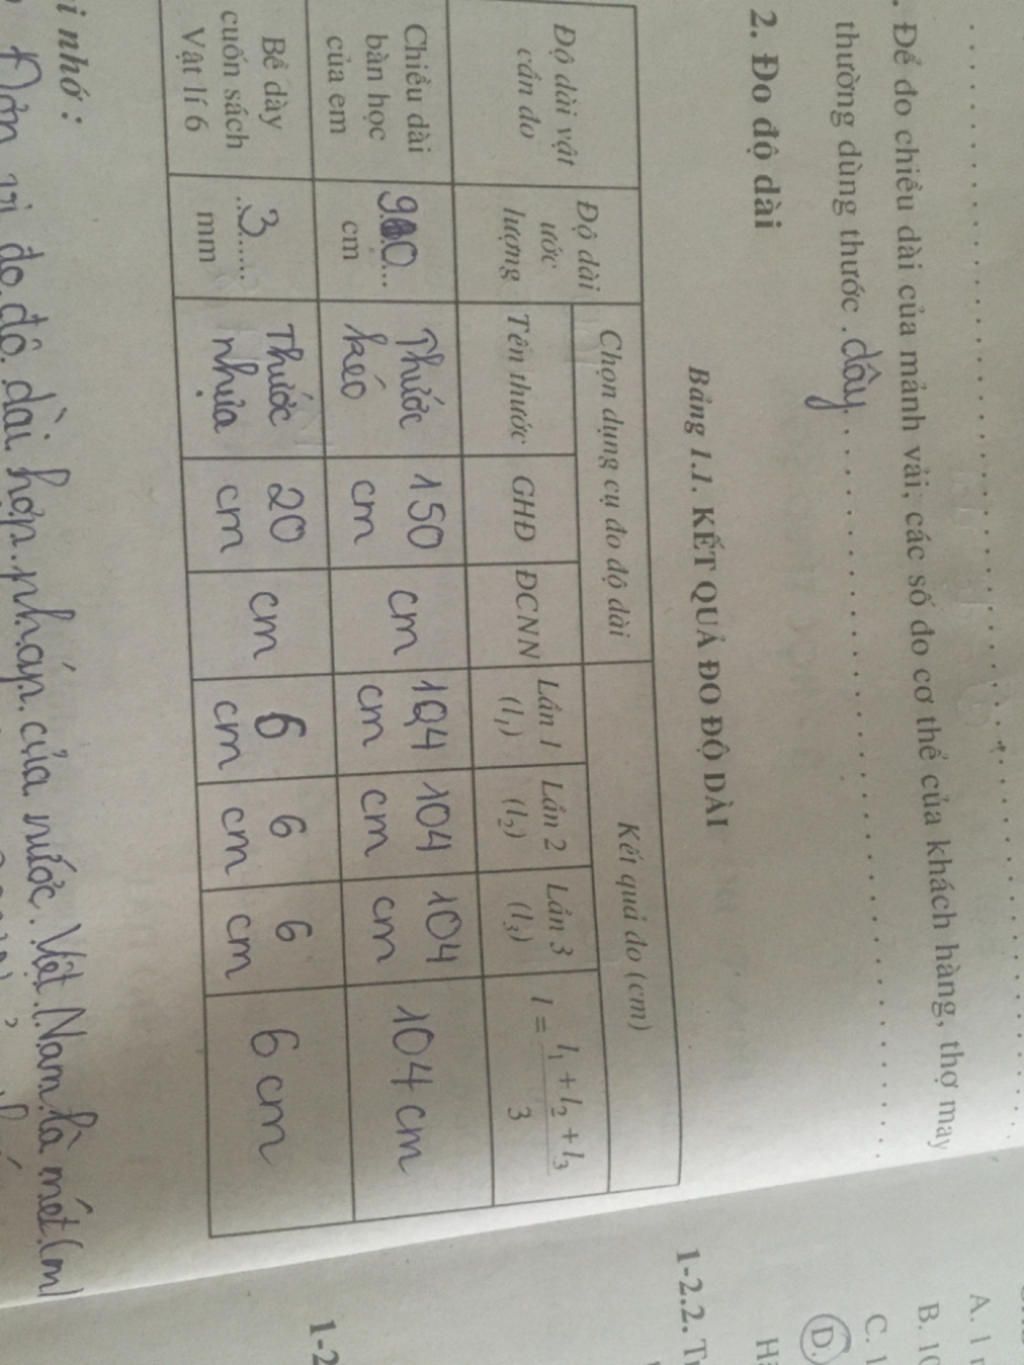 . Để đo chiều dài của mảnh vải, các số đo cơ thể của khách hàng, thợ may
thường dùng thước .dây.
2. Đo độ dài
Bảng 1.1. KẾT QUẢ ĐO ĐỘ DÀI
Độ dài vật cần đo
Độ dài ước lượng
Chọn dụng cụ đo độ dài
Kết quả đo (cm)
Tên thước
GHĐ
ĐCNN
Lần 1 (l₁)
Lần 2 (l₂)
Lần 3 (l₃)
l = (l₁ + l₂ + l₃) / 3
Chiều dài bàn học của em
cm
Thước kéo
150 cm
cm
104 cm
104 cm
104 cm
Bề dày cuốn sách Vật lí 6
..3...... mm
Thước nhựa
20 cm
cm
6 cm
6 cm
6 cm
6 cm
i nhớ :
Đơn vị đo độ dài hợp pháp của nước Việt Nam là mét (m)
1-2.2.
1-2
A. 1
B. 10
C. 1
D.